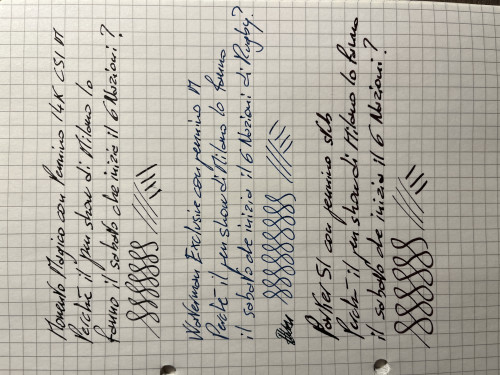 Momento Magico con Pennino 14K CSI M
Perché il pen show di Milano lo
fanno il sabato che inizia il 6 Nazioni?
Waterman Exclusive con pennino M
Perché il pen show di Milano lo fanno
il sabato che inizia il 6 Nazioni di Rugby?
Parker 51 con pennino stub
Perché il pen show di Milano lo fanno
il sabato che inizia il 6 Nazioni?